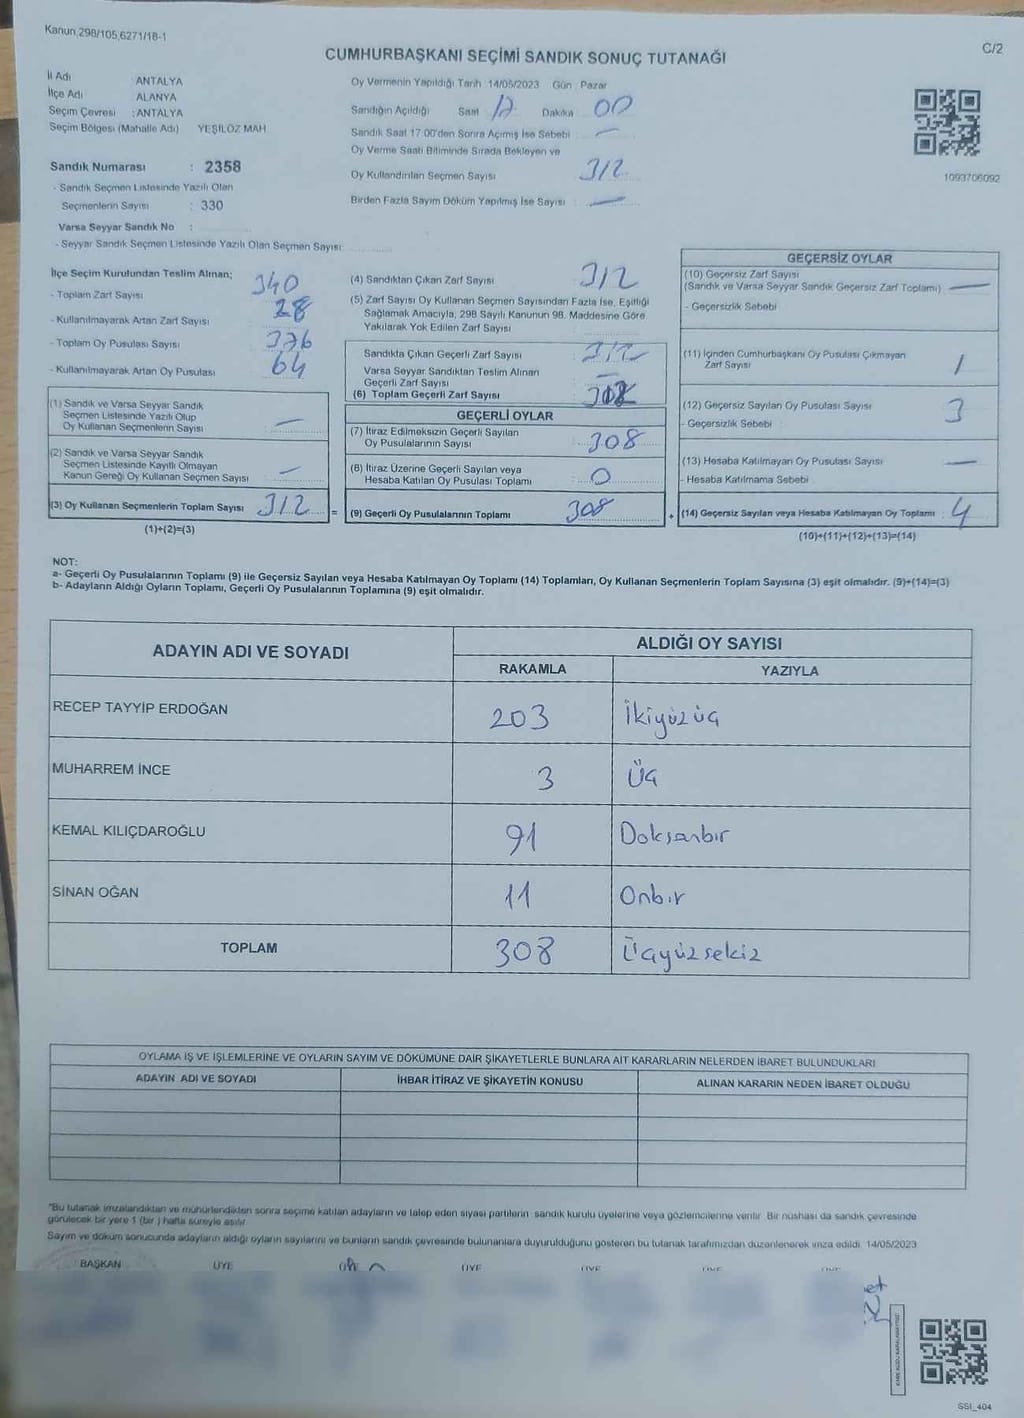 Kanun,298/105,6271/18-1
C/2
CUMHURBAŞKANI SEÇİMİ SANDIK SONUÇ TUTANAĞI
İl Adı ANTALYA
İlçe Adı ALANYA
Seçim Çevresi : ANTALYA
Seçim Bölgesi (Mahalle Adı) YEŞİLÖZ MAH
Sandık Numarası : 2358
- Sandık Seçmen Listesinde Yazılı Olan
Seçmenlerin Sayısı : 330
Varsa Seyyar Sandık No :
- Seyyar Sandık Seçmen Listesinde Yazılı Olan Seçmen Sayısı:
Oy Vermenin Yapıldığı Tarih 14/05/2023 Gün : Pazar
Sandığın Açıldığı Saat 17 Dakika 00
Sandık Saat 17:00'den Sonra Açımış İse Sebebi : —
Oy Verme Saati Bitiminde Sırada Bekleyen ve
Oy Kullandırılan Seçmen Sayısı : 312
Birden Fazla Sayım Döküm Yapılmış İse Sayısı : —
1093706092
İlçe Seçim Kurulundan Teslim Alınan;
- Toplam Zarf Sayısı 340
- Kullanılmayarak Artan Zarf Sayısı 28
- Toplam Oy Pusulası Sayısı 376
- Kullanılmayarak Artan Oy Pusulası 64
(1) Sandık ve Varsa Seyyar Sandık
Seçmen Listesinde Yazılı Olup
Oy Kullanan Seçmenlerin Sayısı : —
(2) Sandık ve Varsa Seyyar Sandık
Seçmen Listesinde Kayıtlı Olmayan
Kanun Gereği Oy Kullanan Seçmen Sayısı : —
(3) Oy Kullanan Seçmenlerin Toplam Sayısı 312 =
(1)+(2)=(3)
(4) Sandıktan Çıkan Zarf Sayısı 312
(5) Zarf Sayısı Oy Kullanan Seçmen Sayısından Fazla İse, Eşitliği
Sağlamak Amacıyla, 298 Sayılı Kanunun 98. Maddesine Göre
Yakılarak Yok Edilen Zarf Sayısı
Sandıkta Çıkan Geçerli Zarf Sayısı : 312
Varsa Seyyar Sandıktan Teslim Alınan
Geçerli Zarf Sayısı : —
(6) Toplam Geçerli Zarf Sayısı
GEÇERLİ OYLAR
(7) İtiraz Edilmeksizin Geçerli Sayılan
Oy Pusulalarının Sayısı : 308
(8) İtiraz Üzerine Geçerli Sayılan veya
Hesaba Katılan Oy Pusulası Toplamı : 0
(9) Geçerli Oy Pusulalarının Toplamı 308 +
GEÇERSİZ OYLAR
(10) Geçersiz Zarf Sayısı
(Sandık ve Varsa Seyyar Sandık Geçersiz Zarf Toplamı) —
- Geçersizlik Sebebi :
(11) İçinden Cumhurbaşkanı Oy Pusulası Çıkmayan
Zarf Sayısı 1
(12) Geçersiz Sayılan Oy Pusulası Sayısı : 3
- Geçersizlik Sebebi :
(13) Hesaba Katılmayan Oy Pusulası Sayısı : —
- Hesaba Katılmama Sebebi :
(14) Geçersiz Sayılan veya Hesaba Katılmayan Oy Toplamı : 4
(10)+(11)+(12)+(13)=(14)
NOT:
a- Geçerli Oy Pusulalarının Toplamı (9) ile Geçersiz Sayılan veya Hesaba Katılmayan Oy Toplamı (14) Toplamları, Oy Kullanan Seçmenlerin Toplam Sayısına (3) eşit olmalıdır. (9)+(14)=(3)
b- Adayların Aldığı Oyların Toplamı, Geçerli Oy Pusulalarının Toplamına (9) eşit olmalıdır.
ADAYIN ADI VE SOYADI ALDIĞI OY SAYISI
RAKAMLA YAZIYLA
RECEP TAYYİP ERDOĞAN 203 İkiyüzüç
MUHARREM İNCE 3 Üç
KEMAL KILIÇDAROĞLU 91 Doksanbir
SİNAN OĞAN 11 Onbir
TOPLAM 308 Üçyüzsekiz
OYLAMA İŞ VE İŞLEMLERİNE VE OYLARIN SAYIM VE DÖKÜMÜNE DAİR ŞİKAYETLERLE BUNLARA AİT KARARLARIN NELERDEN İBARET BULUNDUKLARI
ADAYIN ADI VE SOYADI İHBAR İTİRAZ VE ŞİKAYETİN KONUSU ALINAN KARARIN NEDEN İBARET OLDUĞU
*Bu tutanak imzalandıktan ve mühürlendikten sonra seçime katılan adayların ve talep eden siyasi partilerin sandık kurulu üyelerine veya gözlemcilerine verilir. Bir nüshası da sandık çevresinde
görülecek bir yere 1 (bir ) hafta süreyle asılır.
Sayım ve döküm sonucunda adayların aldığı oyların sayılarını ve bunların sandık çevresinde bulunanlara duyurulduğunu gösteren bu tutanak tarafımızdan düzenlenerek imza edildi. 14/05/2023
BAŞKAN ÜYE ÜYE ÜYE ÜYE ÜYE
SSI_404